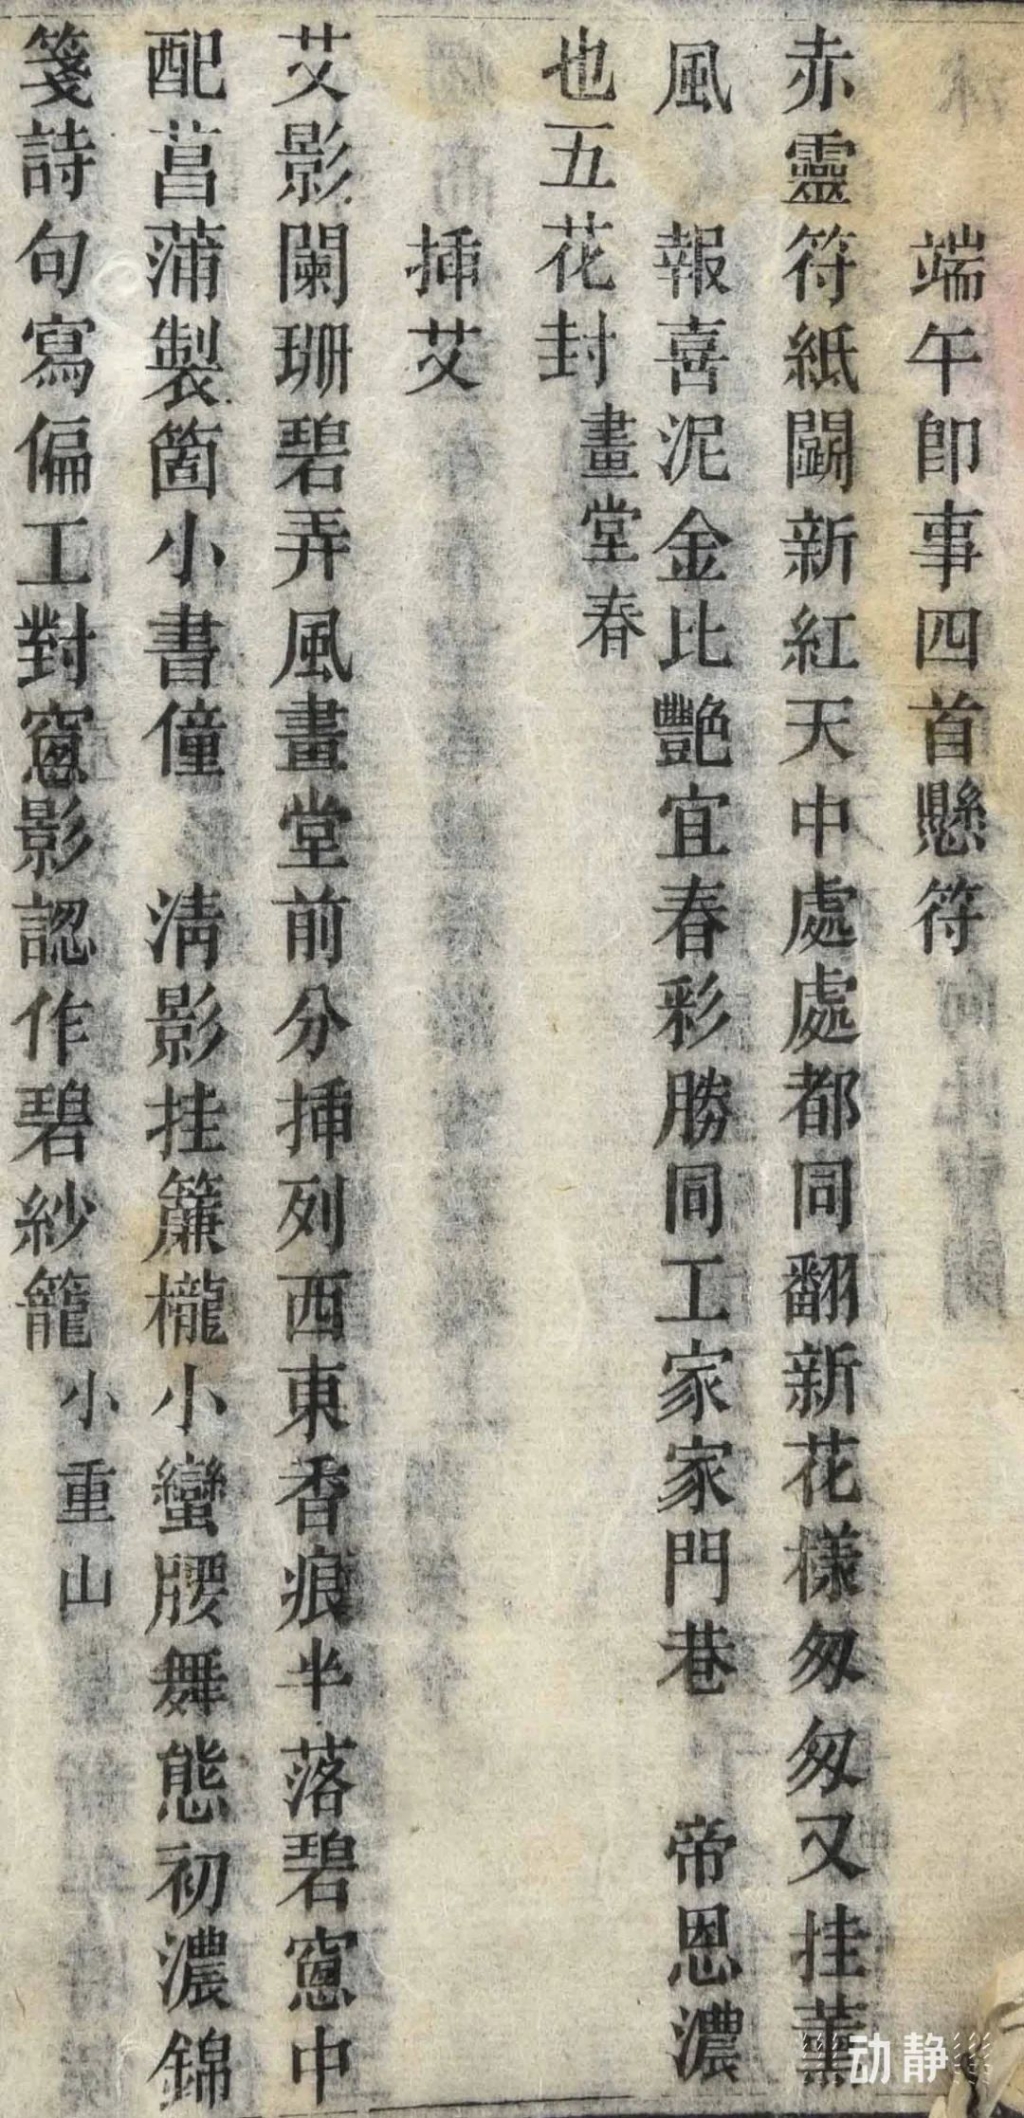 端午卽事四首懸符
赤靈符紙鬬新紅天中處處都同翻新花樣匆匆又挂薰
風　報喜泥金比艷宜春彩勝同工家家門巷　帝恩濃
也五花封畫堂春
揷艾
艾影闌珊碧弄風畫堂前分揷列西東香痕半落碧窻中
配菖蒲製箇小書僮　淸影挂簾櫳小蠻腰舞態初濃錦
箋詩句寫偏工對窻影認作碧紗籠小重山
动静